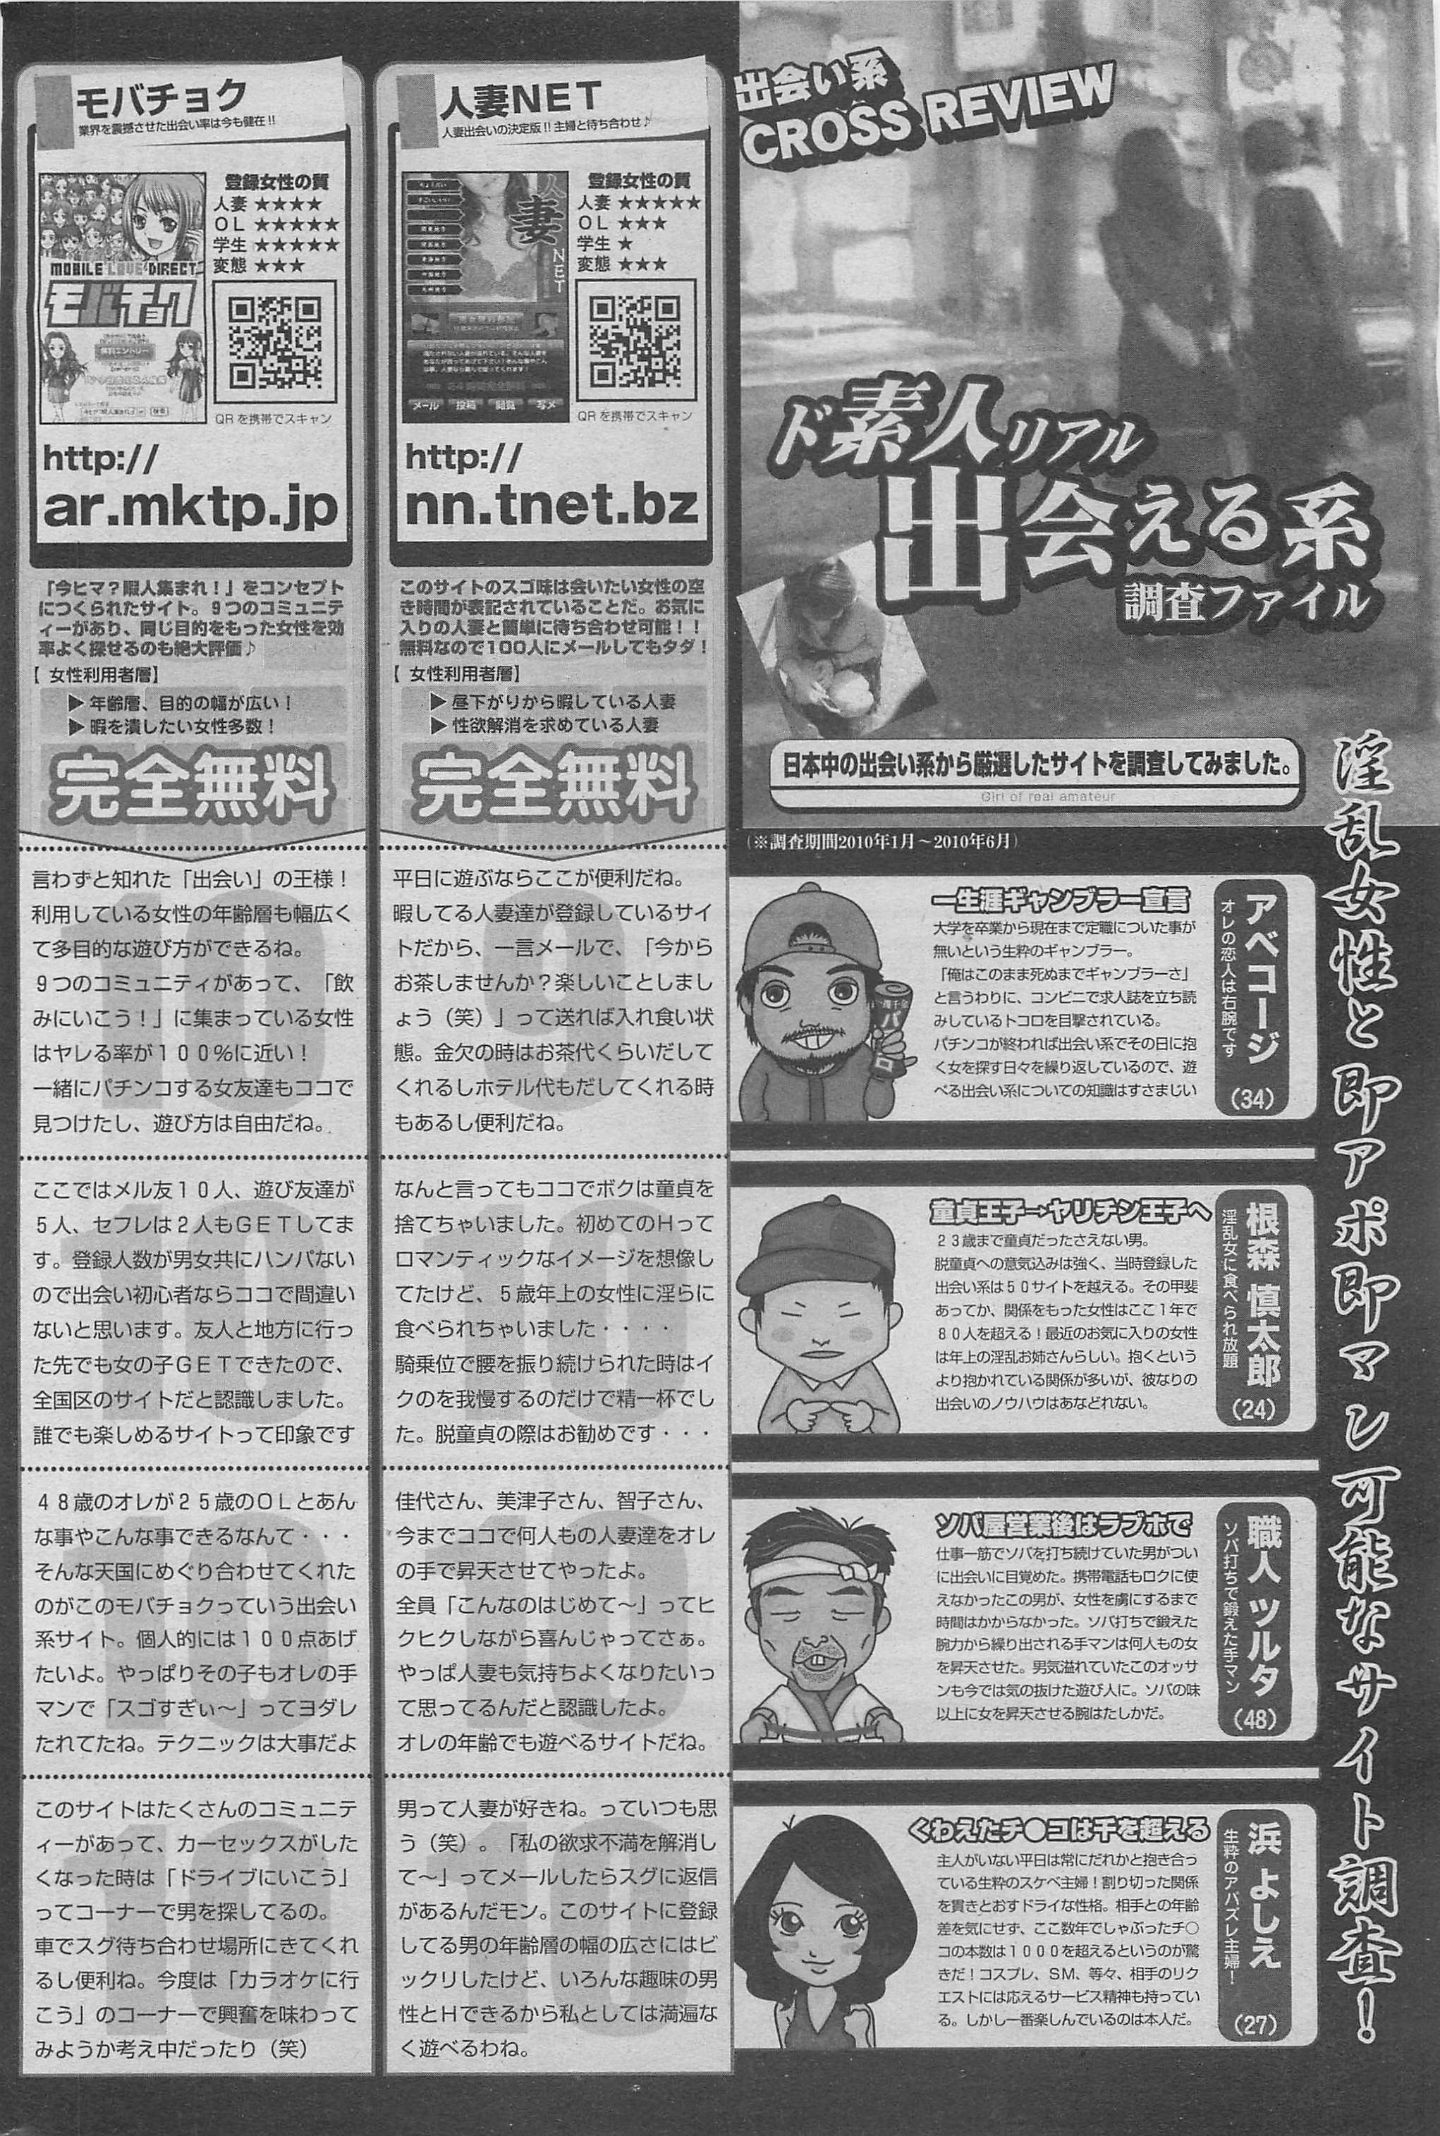 出会い系
CROSS REVIEW
ド素人リアル
出会える系
調査ファイル
日本中の出会い系から厳選したサイトを調査してみました。
Girl of real amateur
(※調査期間2010年1月～2010年6月)
淫乱女性と即アポ即マン可能なサイト調査！
アベコージ
オレの恋人は右腕です
(34)
一生涯ギャンブラー宣言
大学を卒業から現在まで定職についた事が
無いという生粋のギャンブラー。
「俺はこのまま死ぬまでギャンブラーさ」
と言うわりに、コンビニで求人誌を立ち読
みしているトコロを目撃されている。
パチンコが終われば出会い系でその日に抱
く女を探す日々を繰り返しているので、遊
べる出会い系についての知識はすさまじい
根森 慎太郎
淫乱女に食べられ放題
(24)
童貞王子→ヤリチン王子へ
23歳まで童貞だったさえない男。
脱童貞への意気込みは強く、当時登録した
出会い系は50サイトを越える。その甲斐
あってか、関係をもった女性はここ1年で
80人を超える！最近のお気に入りの女性
は年上の淫乱お姉さんらしい。抱くという
より抱かれている関係が多いが、彼なりの
出会いのノウハウはあなどれない。
職人 ツルタ
ソバ打ちで鍛えた手マン
(48)
ソバ屋営業後はラブホで
仕事一筋でソバを打ち続けていた男がつい
に出会いに目覚めた。携帯電話もロクに使
えなかったこの男が、女性を虜にするまで
時間はかからなかった。ソバ打ちで鍛えた
腕力から繰り出される手マンは何人もの女
を昇天させた。男気溢れていたこのオッサ
ンも今では気の抜けた遊び人に。ソバの味
以上に女を昇天させる腕はたしかだ。
浜 よしえ
生粋のアバズレ主婦！
(27)
くわえたチ●コは千を超える
主人がいない平日は常にだれかと抱き合っ
ている生粋のスケベ主婦！割り切った関係
を貫きとおすドライな性格。相手との年齢
差を気にせず、ここ数年でしゃぶったチ○
コの本数は1000を超えるというのが驚
きだ！コスプレ、SM、等々、相手のリク
エストには応えるサービス精神も持ってい
る。しかし一番楽しんでいるのは本人だ。
人妻NET
人妻出会いの決定版!!主婦と待ち合わせ♪
登録女性の質
人妻 ★★★★★
OL ★★★
学生 ★
変態 ★★★
人妻
NET
メール 投稿 閲覧 写メ
QRを携帯でスキャン
http://
nn.tnet.bz
このサイトのスゴ味は会いたい女性の空
き時間が表記されていることだ。お気に
入りの人妻と簡単に待ち合わせ可能！！
無料なので100人にメールしてもタダ！
【 女性利用者層】
▶昼下がりから暇している人妻
▶性欲解消を求めている人妻
完全無料
9
平日に遊ぶならここが便利だね。
暇してる人妻達が登録しているサイ
トだから、一言メールで、「今から
お茶しませんか？楽しいことしまし
ょう（笑）」って送れば入れ食い状
態。金欠の時はお茶代くらいだして
くれるしホテル代もだしてくれる時
もあるし便利だね。
10
なんと言ってもココでボクは童貞を
捨てちゃいました。初めてのHって
ロマンティックなイメージを想像し
てたけど、5歳年上の女性に淫らに
食べられちゃいました・・・・
騎乗位で腰を振り続けられた時はイ
クのを我慢するのだけで精一杯でし
た。脱童貞の際はお勧めです・・・
10
佳代さん、美津子さん、智子さん、
今までココで何人もの人妻達をオレ
の手で昇天させてやったよ。
全員「こんなのはじめて～」ってヒ
クヒクしながら喜んじゃってさぁ。
やっぱ人妻も気持ちよくなりたいっ
て思ってるんだと認識したよ。
オレの年齢でも遊べるサイトだね。
10
男って人妻が好きね。っていつも思
う（笑）。「私の欲求不満を解消し
て～」ってメールしたらスグに返信
があるんだモン。このサイトに登録
してる男の年齢層の幅の広さにはビ
ックリしたけど、いろんな趣味の男
性とHできるから私としては満遍な
く遊べるわね。
モバチョク
業界を震撼させた出会い率は今も健在!!
登録女性の質
人妻 ★★★★
OL ★★★★★
学生 ★★★★★
変態 ★★★
MOBILE LOVE DIRECT
モバチョク
無料エントリー
QRを携帯でスキャン
http://
ar.mktp.jp
「今ヒマ？暇人集まれ！」をコンセプト
につくられたサイト。9つのコミュニテ
ィーがあり、同じ目的をもった女性を効
率よく探せるのも絶大評価♪
【 女性利用者層】
▶年齢層、目的の幅が広い！
▶暇を潰したい女性多数！
完全無料
10
言わずと知れた「出会い」の王様！
利用している女性の年齢層も幅広く
て多目的な遊び方ができるね。
9つのコミュニティがあって、「飲
みにいこう！」に集まっている女性
はヤレる率が100％に近い！
一緒にパチンコする女友達もココで
見つけたし、遊び方は自由だね。
10
ここではメル友10人、遊び友達が
5人、セフレは2人もGETしてま
す。登録人数が男女共にハンパない
ので出会い初心者ならココで間違い
ないと思います。友人と地方に行っ
た先でも女の子GETできたので、
全国区のサイトだと認識しました。
誰でも楽しめるサイトって印象です
10
48歳のオレが25歳のOLとあん
な事やこんな事できるなんて・・・
そんな天国にめぐり合わせてくれた
のがこのモバチョクっていう出会い
系サイト。個人的には100点あげ
たいよ。やっぱりその子もオレの手
マンで「スゴすぎぃ～」ってヨダレ
たれてたね。テクニックは大事だよ
10
このサイトはたくさんのコミュニテ
ィーがあって、カーセックスがした
くなった時は「ドライブにいこう」
ってコーナーで男を探してるの。
車でスグ待ち合わせ場所にきてくれ
るし便利ね。今度は「カラオケに行
こう」のコーナーで興奮を味わって
みようか考え中だったり（笑）